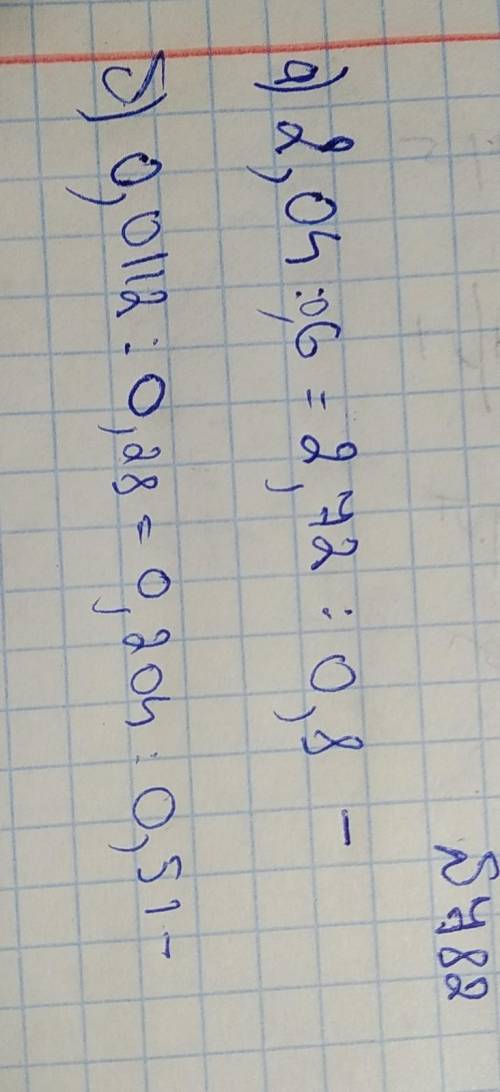 5782
а) 2,04 : 0,6 = 2,72 : 0,8 –
б) 0,0112 : 0,28 = 0,204 : 0,51 –